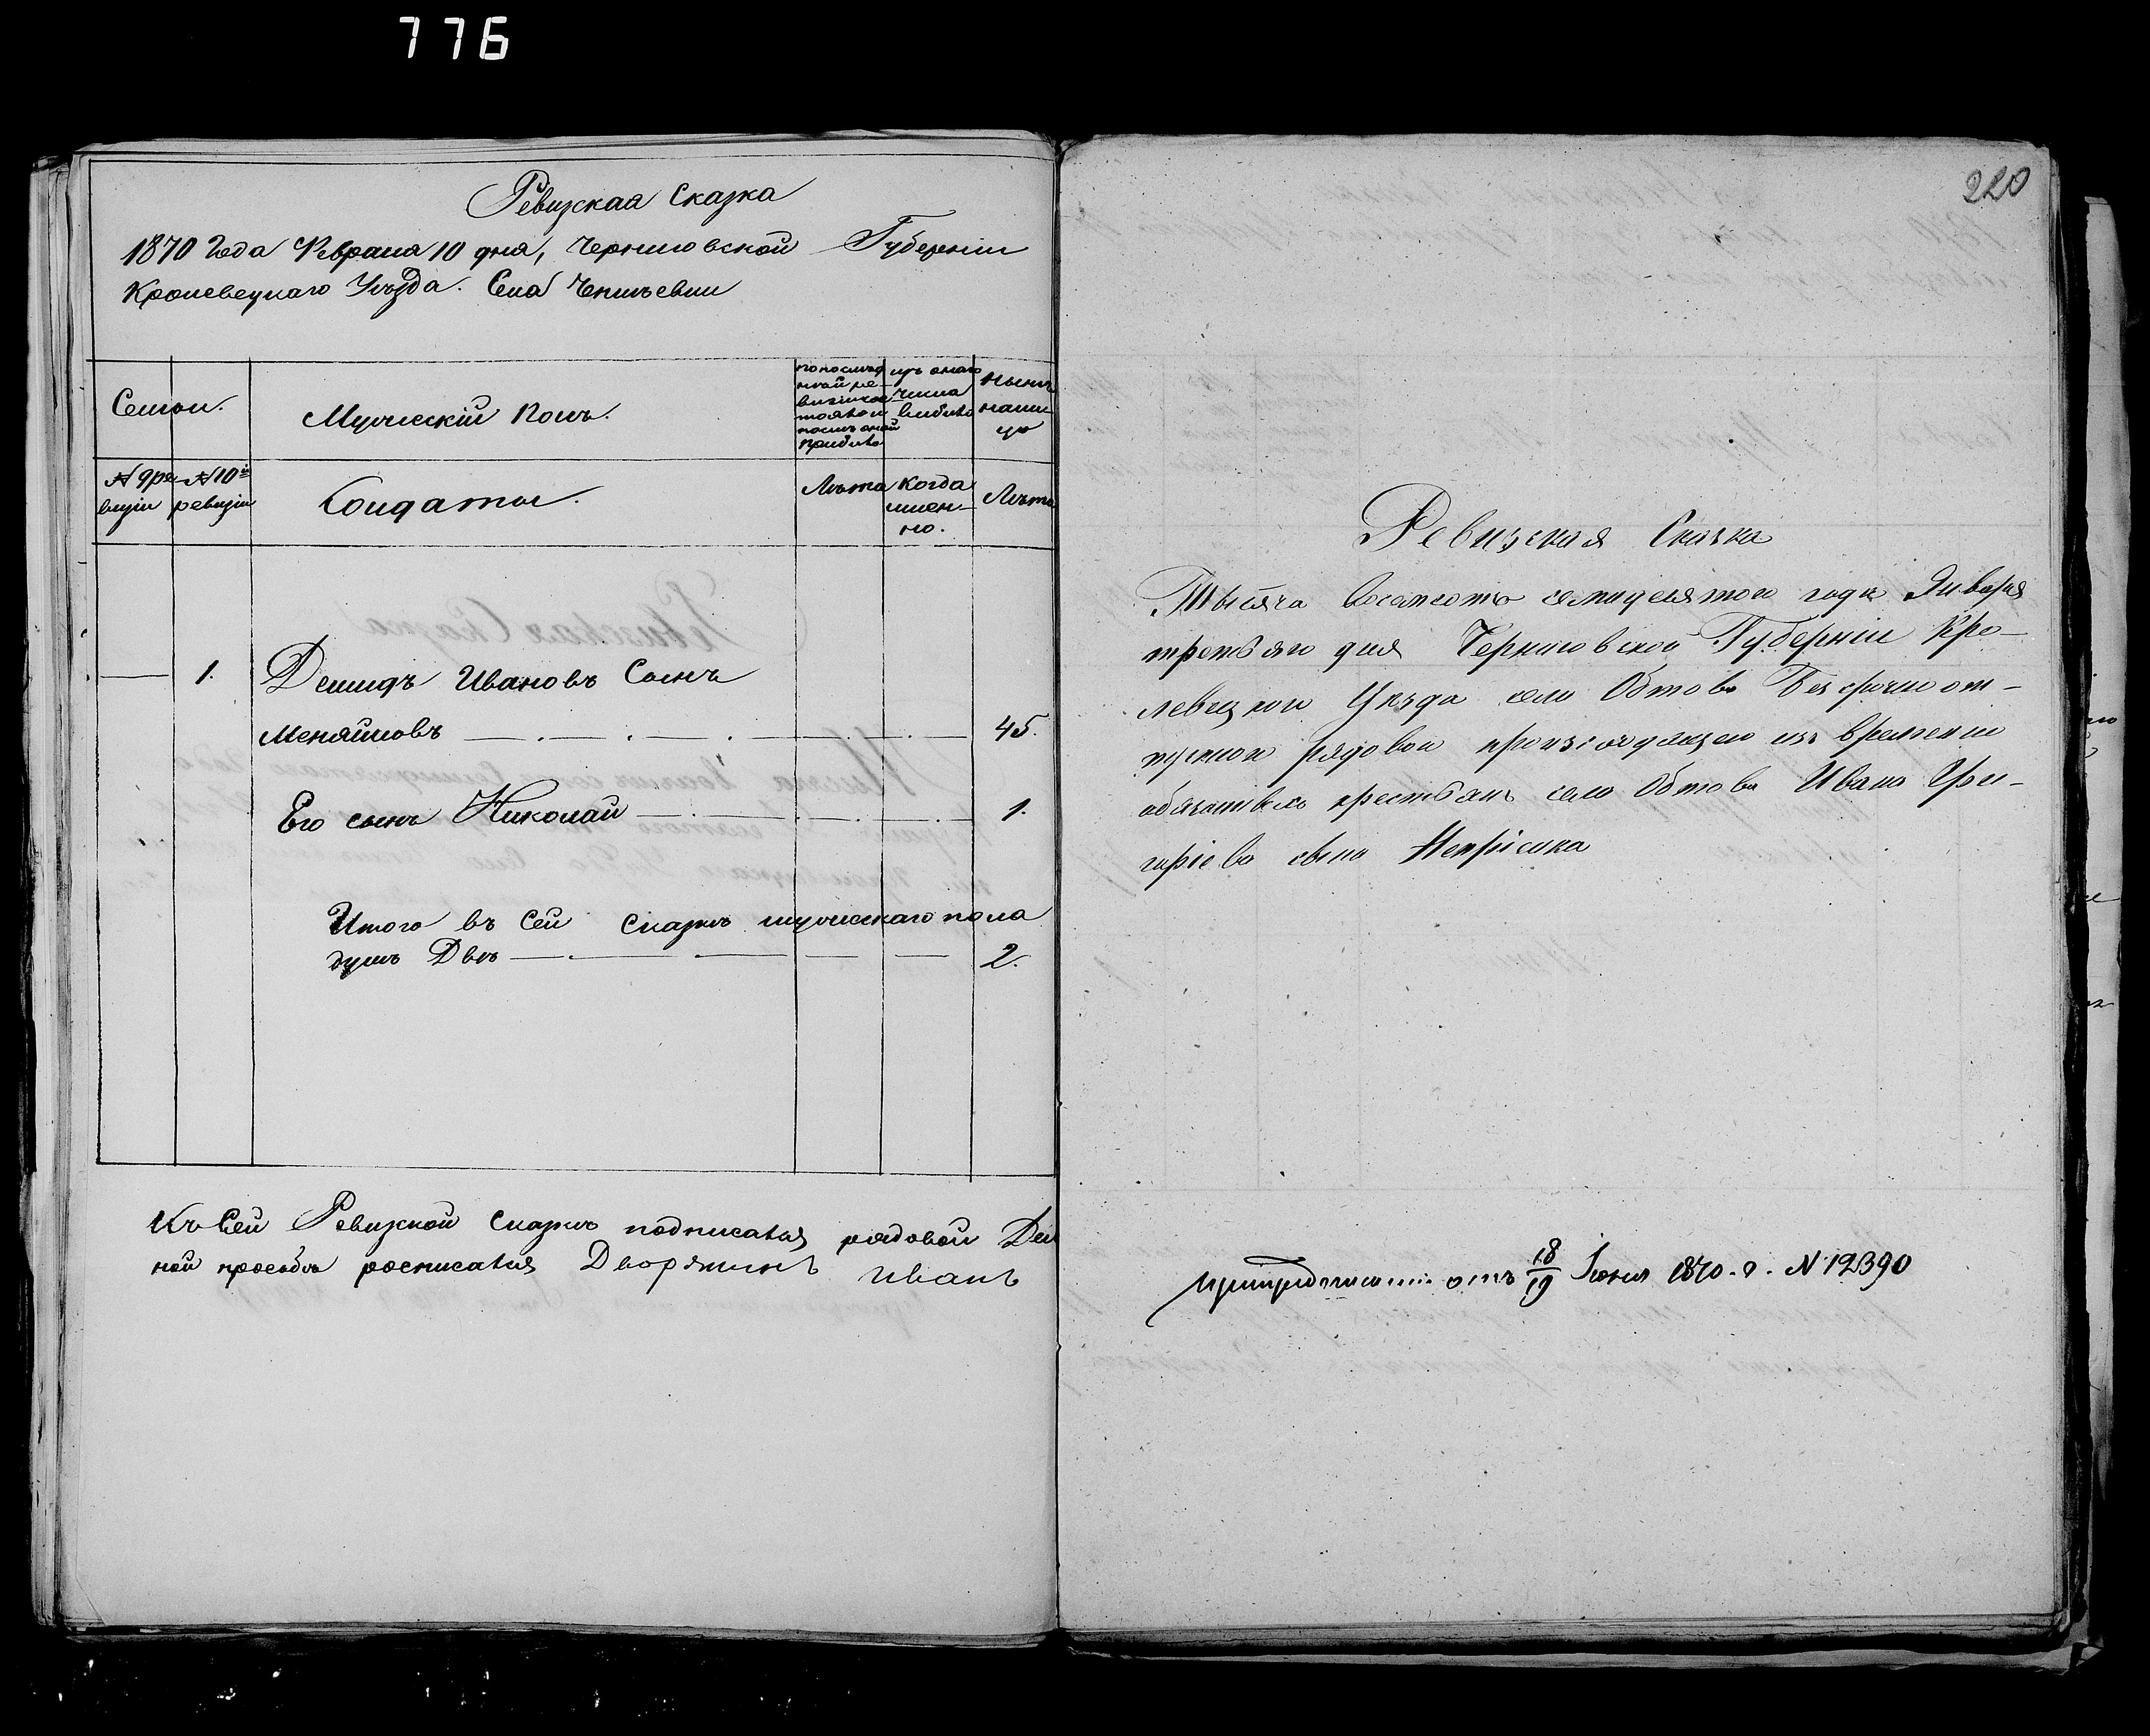 776
Ревизская Сказка
1870 Года Февраля 10 дня, Черниговской Губернiи
Кролевецкаго Уѣзда. Села
Семьи.
Мужескiй Полъ.
по послѣд
ней ре-
визiи со
стояло и
послѣ оной
прибыло
изъ онаго
числа
выбыло
Нынѣ
на ли
цо
№ 9 ре-
визiи
№ 10й
ревизiи
Солдаты.
Лѣта
Когда
имен-
но.
Лѣта
1. Демидъ Ивановъ Сынъ
Меняйловъ 45.
Его сынъ Николай 1.
Итого въ Сей Сказкѣ мужескаго пола
душъ Двѣ 2.
Къ Сей Ревизкой Сказкѣ подписался рядовой Дем
ной прозьбѣ росписался Дворянинъ Иванъ
220
Ревизская Сказка
Тысяча восемсотъ семидесятого года Января
третьяго дня Черниговской Губернiи Кро-
левецкого Уѣзда села Обтова Безсрочноот-
пускной рядовой произходящего изъ временно
обязательн крестьянъ села Обтова Ивана Гри-
горiева сына
отъ 18/19 Iюня 1870. г. № 12390